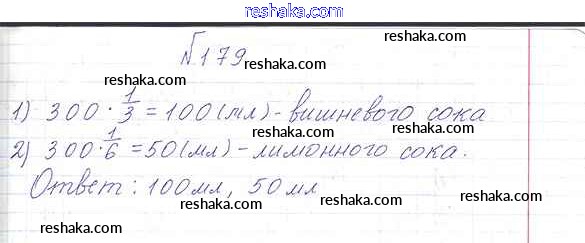 reshaka.com
№179
reshaka.com
reshaka.com
1) 300 · 1/3 = 100 (мл) - вишневого сока
reshaka.com
2) 300 · 1/6 = 50 (мл) - лимонного сока.
reshaka.com
reshaka.com
Ответ: 100 мл, 50 мл
reshaka.com
reshaka.com
reshaka.com